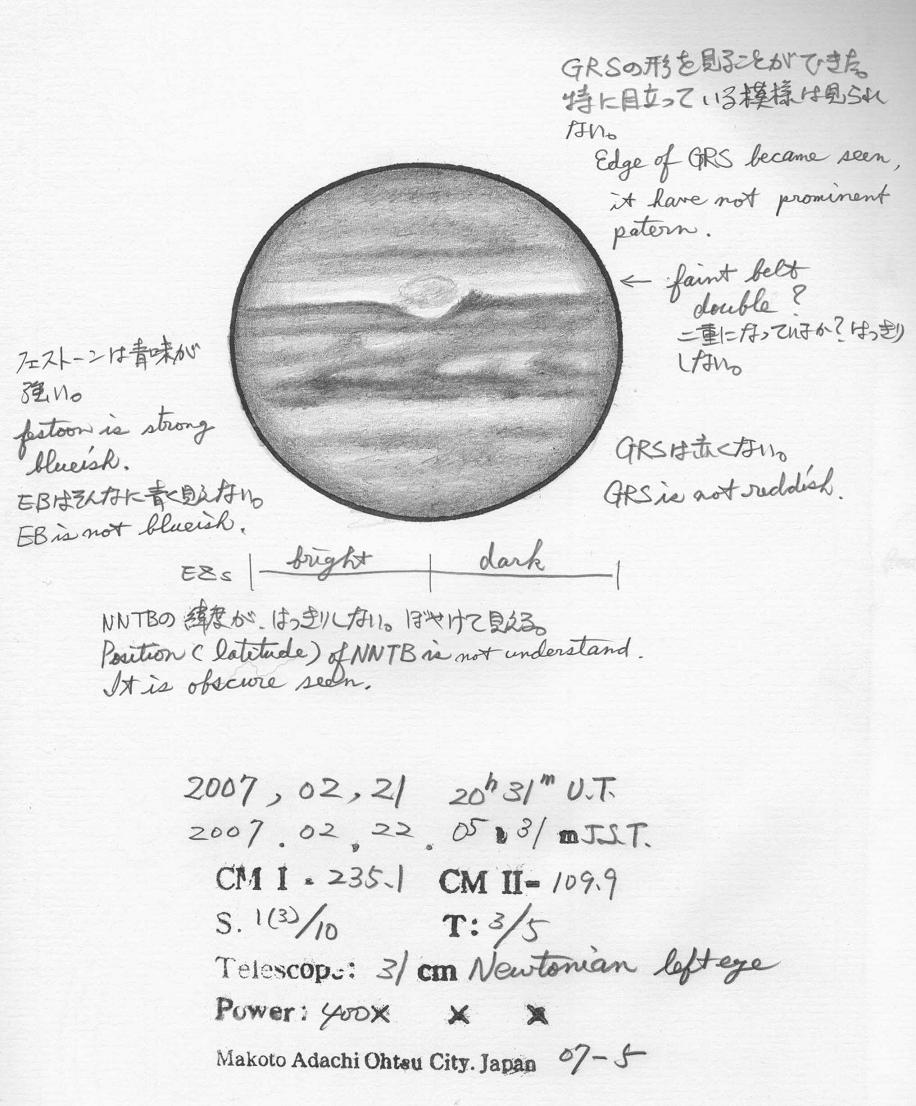 GRSの形を見ることができた。
特に目立っている模様は見られ
ない。
Edge of GRS became seen,
it have not prominent
patern.
← faint belt
double?
二重になっているか?はっきり
しない。
フェストーンは青味が
強い。
festoon is strong
blueish.
EBはそんなに青く見えない。
EB is not blueish.
GRSは赤くない。
GRS is not reddish.
EZs bright dark
NNTBの緯度が、はっきりしない。ぼやけて見える。
Position (latitude) of NNTB is not understand.
It is obscure seen.
2007, 02, 21 20h 31m U.T.
2007. 02, 22. 05 h 31 m J.S.T.
CM I = 235.1 CM II= 109.9
S. 1(3)/10 T: 3/5
Telescope: 31 cm Newtonian left eye
Power: 400× × ×
Makoto Adachi Ohtsu City. Japan 07-5